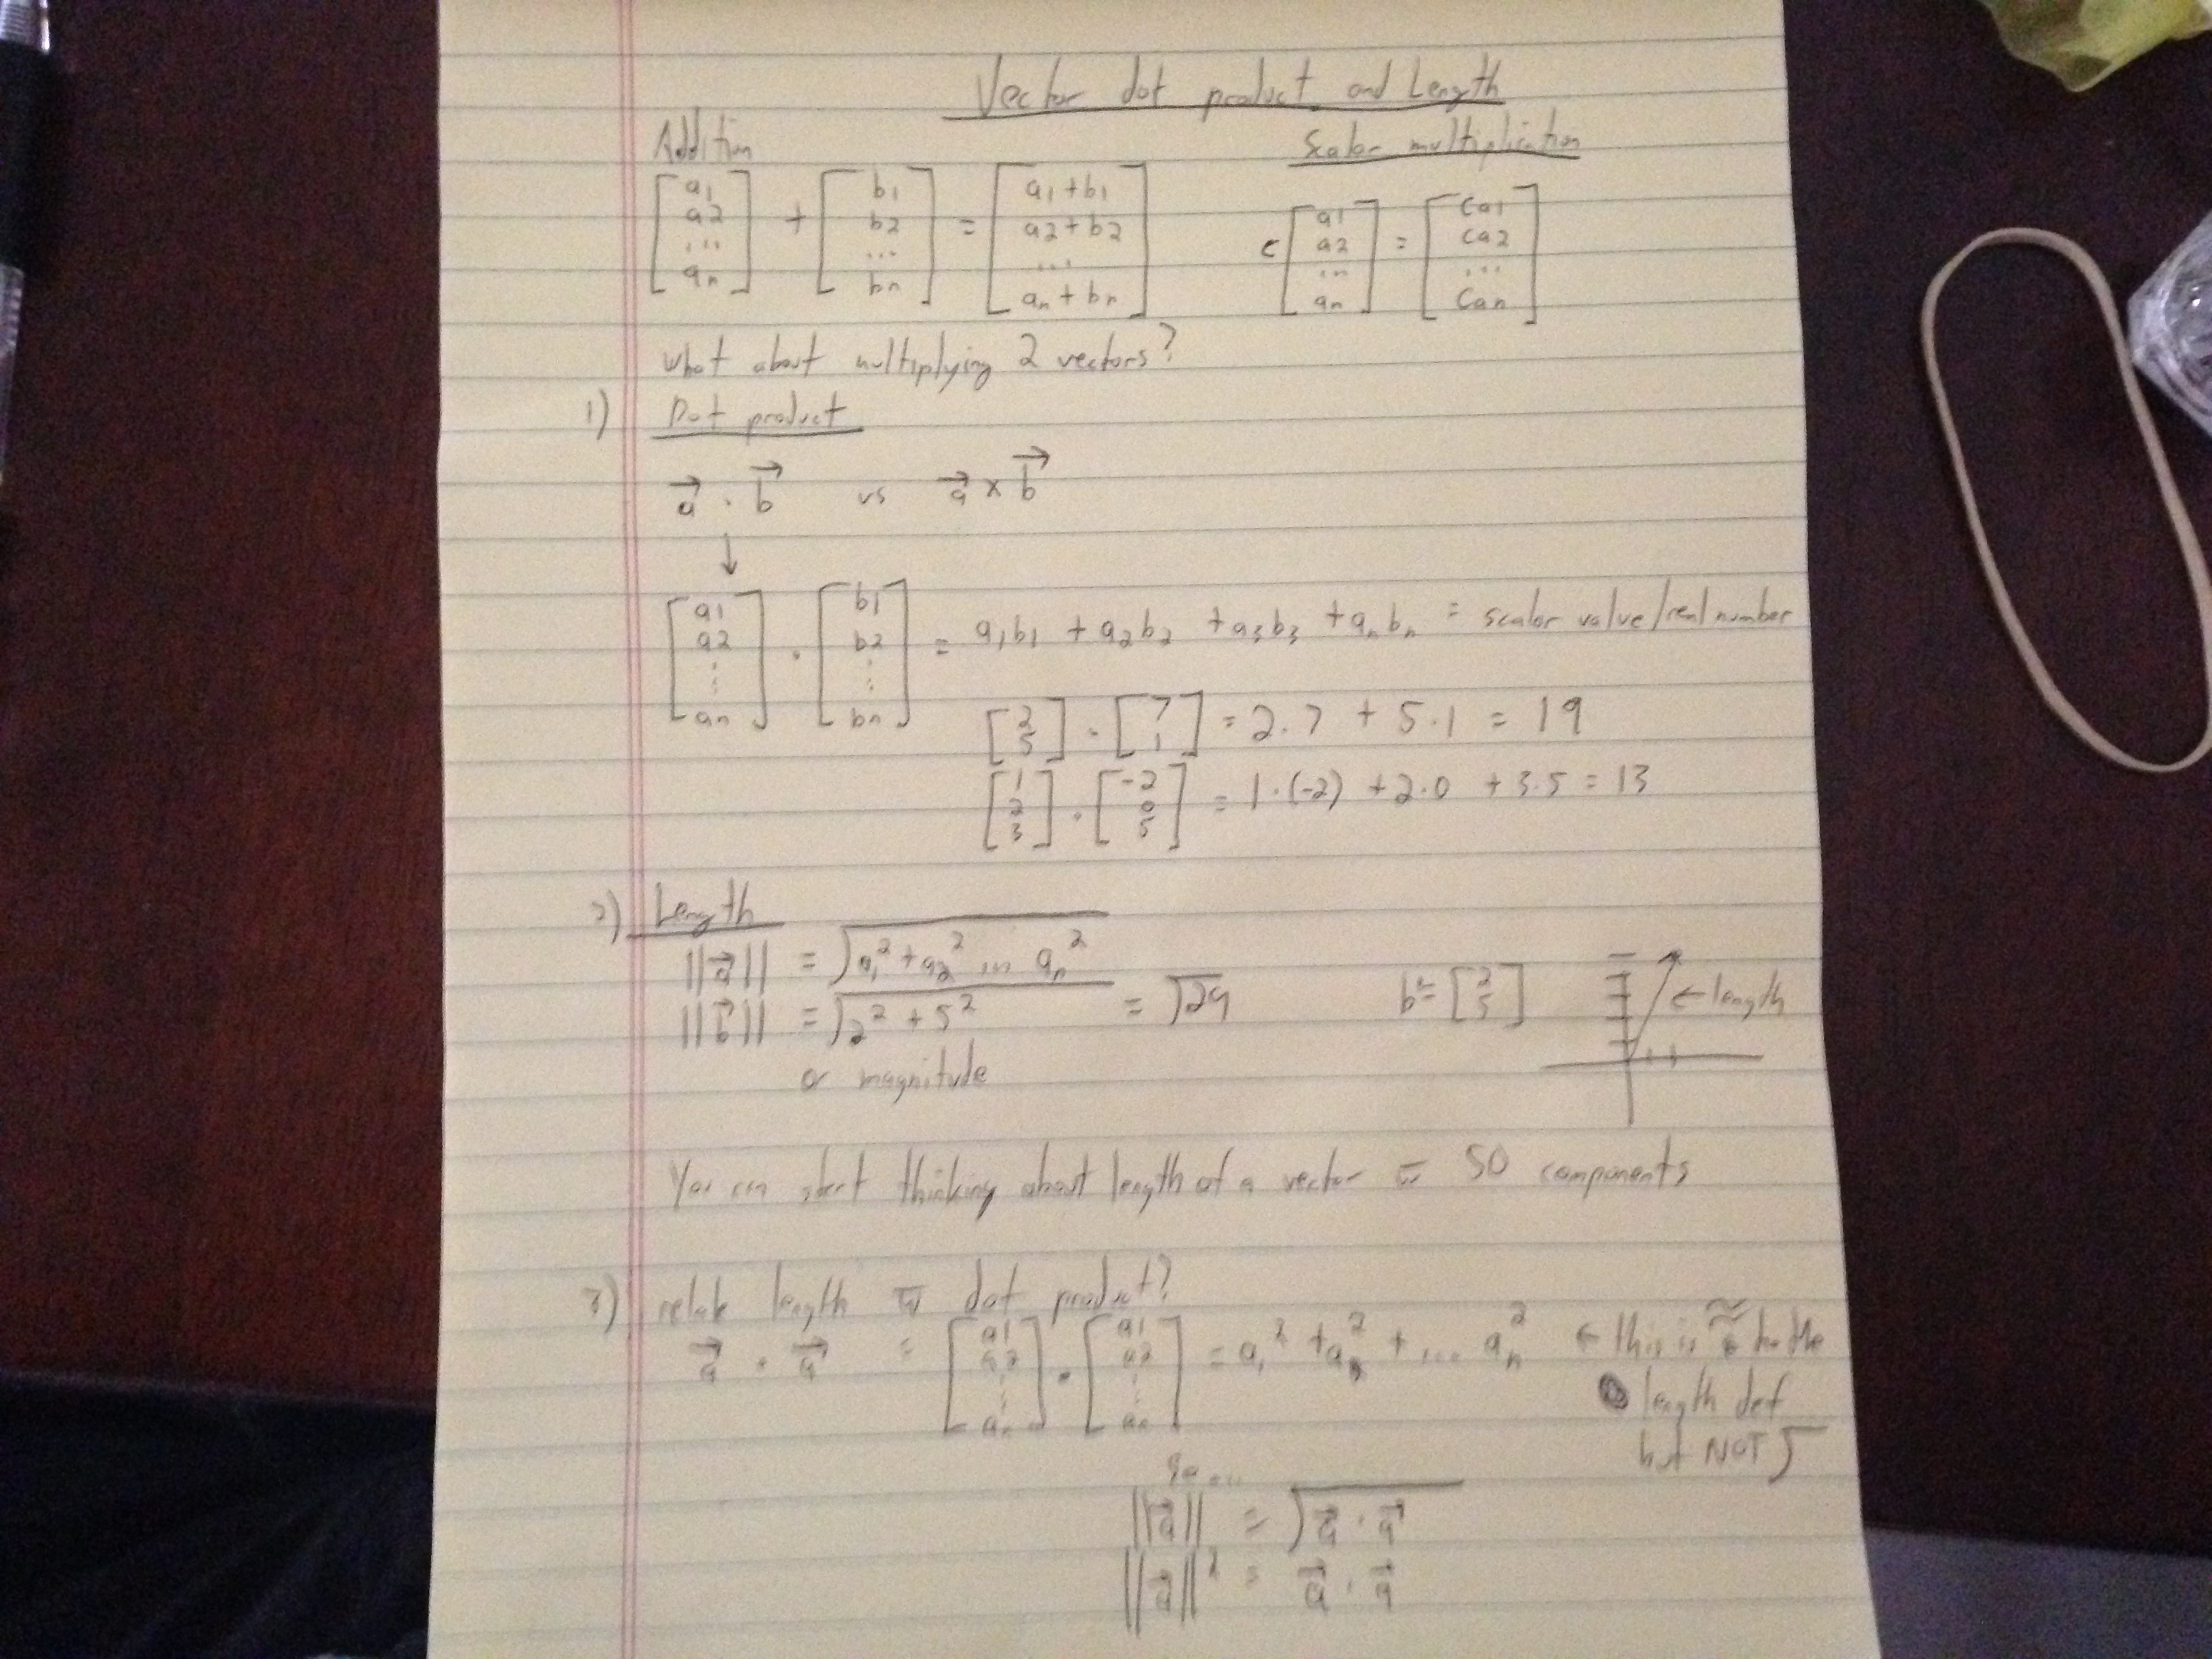 Vector dot product and Length
Addition
Scalar multiplication
[a1 a2 ... an] + [b1 b2 ... bn] = [a1+b1 a2+b2 ... an+bn]
c [a1 a2 ... an] = [ca1 ca2 ... can]
what about multiplying 2 vectors?
1) Dot product
a⃗ · b⃗ vs a⃗ x b⃗
↓
[a1 a2 ⋮ an] · [b1 b2 ⋮ bn] = a1b1 + a2b2 + a3b3 + anbn = scalar value/real number
[2 5] · [7 1] = 2·7 + 5·1 = 19
[1 2 3] · [-2 0 5] = 1·(-2) + 2·0 + 3·5 = 13
2) Length
||a⃗|| = √(a1² + a2² ... an²)
||b⃗|| = √(2² + 5²) = √29 b = [2 5] ← length
or magnitude
You can start thinking about length of a vector w 50 components
3) relate length to dot product?
a⃗ · a⃗ = [a1 a2 ⋮ an] · [a1 a2 ⋮ an] = a1² + a2² + ... an² ← this is ≈ to the
length def
but NOT √
||a⃗|| = √(a⃗ · a⃗)
||a⃗||² = a⃗ · a⃗